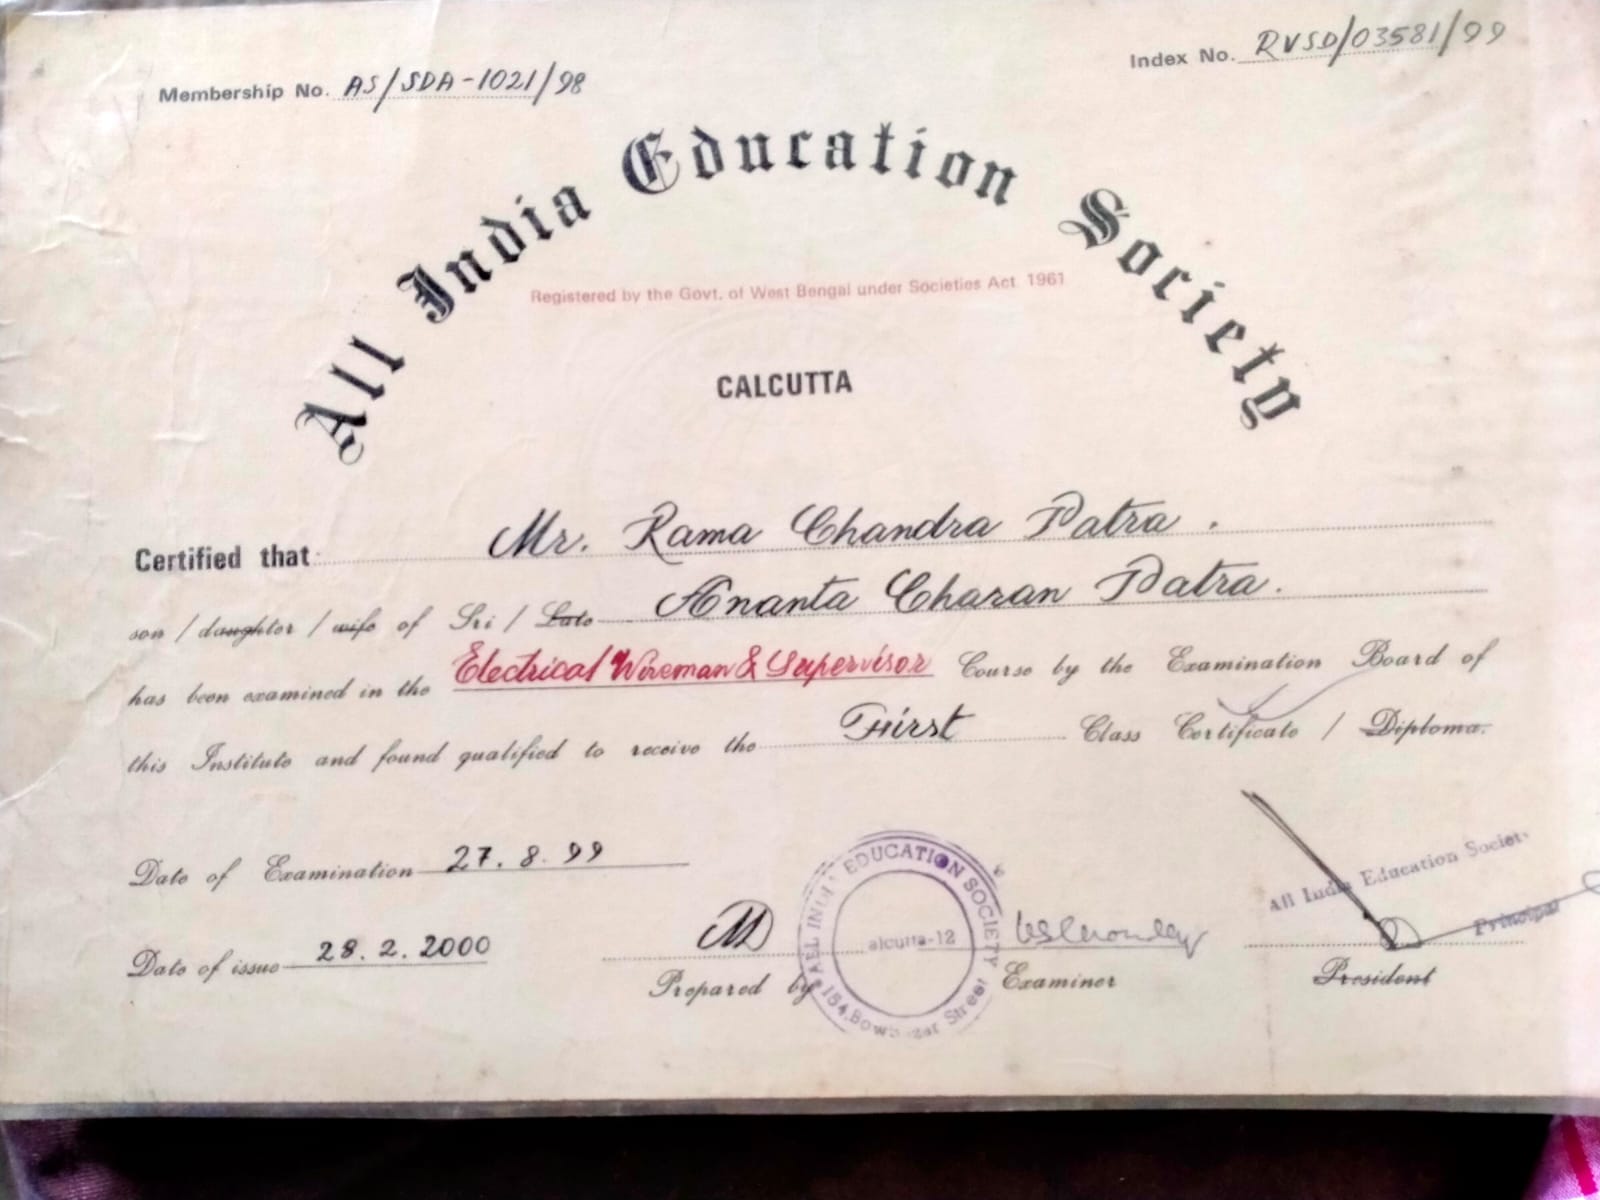 Membership No. AS/SDA-1021/98
Index No. RVSD/03581/99
All India Education Society
Registered by the Govt. of West Bengal under Societies Act 1961
CALCUTTA
Certified that Mr. Rama Chandra Patra.
son / daughter / wife of Sri / Late Ananta Charan Patra.
has been examined in the Electrical Wireman & Supervisor Course by the Examination Board of
this Institute and found qualified to receive the First Class Certificate / Diploma.
Date of Examination 27.8.99
Date of issue 28.2.2000
Prepared by
EDUCATION SOCIETY
alcutta-12
154, Street
Examiner
All India Education Society
Principal
President